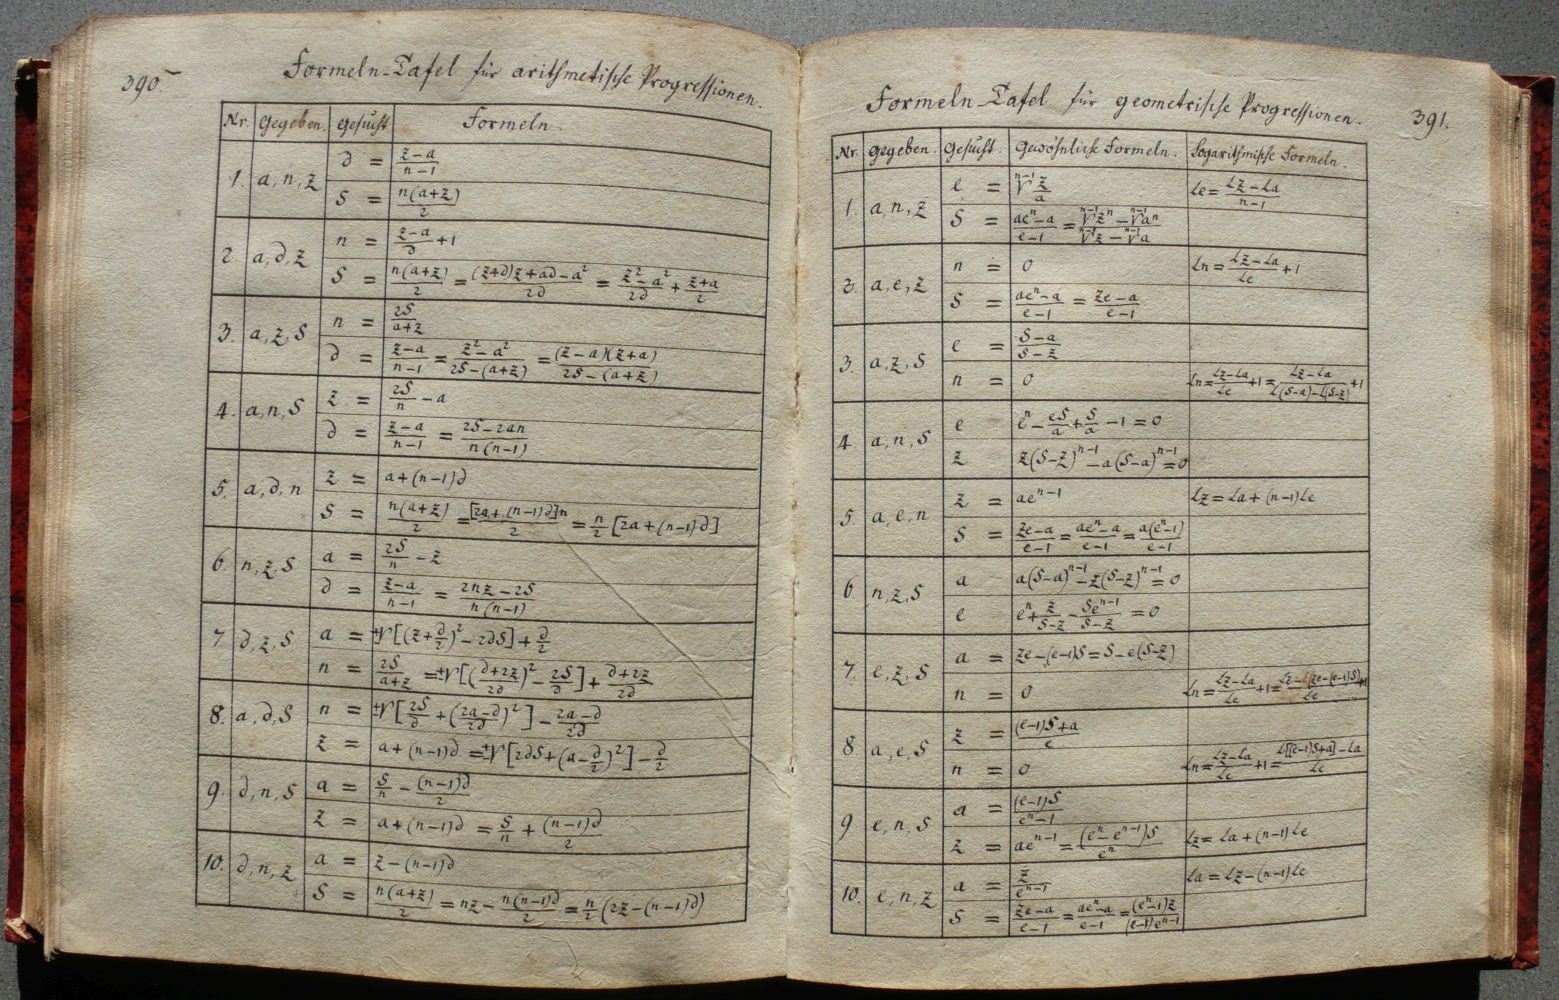 390.
Formeln-Tafel für arithmetische Progressionen.
Nr. Gegeben. Gesucht Formeln.
1. a, n, z
d = (z-a)/(n-1)
S = n(a+z)/2
2 a, d, z
n = (z-a)/d +1
S = n(a+z)/2 = ((z+d)z+ad-a²)/2d = (z²-a²)/2d + (z+a)/2
3. a, z, S
n = 2S/(a+z)
d = (z-a)/(n-1) = (z²-a²)/(2S-(a+z)) = (z-a)(z+a)/(2S-(a+z))
4. a, n, S
z = 2S/n - a
d = (z-a)/(n-1) = (2S-2an)/n(n-1)
5. a, d, n
z = a+(n-1)d
S = n(a+z)/2 = [2a+(n-1)d]n/2 = n/2 [2a+(n-1)d]
6 n, z, S
a = 2S/n - z
d = (z-a)/(n-1) = (2nz-2S)/n(n-1)
7 d, z, S
a = ±√[(z+d/2)²-2dS]+d/2
n = 2S/(a+z) = ±√[((d+2z)/2d)²-2S/d]+(d+2z)/2d
8. a, d, S
n = ±√[2S/d+((2a-d)/2d)²]-(2a-d)/2d
z = a+(n-1)d = ±√[2dS+(a-d/2)²]-d/2
9. d, n, S
a = S/n - (n-1)d/2
z = a+(n-1)d = S/n + (n-1)d/2
10. d, n, z
a = z-(n-1)d
S = n(a+z)/2 = nz - n(n-1)d/2 = n/2 (2z-(n-1)d)
Formeln-Tafel für geometrische Progressionen.
391.
Nr. Gegeben. Gesucht. Gewöhnliche Formeln. Logarithmische Formeln.
1. a, n, z
e = ⁿ⁻¹√z/a Le = (Lz-La)/(n-1)
S = (aeⁿ-a)/(e-1) = (ⁿ⁻¹√zⁿ-ⁿ⁻¹√aⁿ)/(ⁿ⁻¹√z-ⁿ⁻¹√a)
2. a, e, z
n = 0 Ln = (Lz-La)/Le +1
S = (aeⁿ-a)/(e-1) = (ze-a)/(e-1)
3. a, z, S
e = (S-a)/(S-z)
n = 0 Ln = (Lz-La)/Le +1 = (Lz-La)/(L(S-a)-L(S-z)) +1
4 a, n, S
e eⁿ-eS/a+S/a-1=0
z z(S-z)ⁿ⁻¹-a(S-a)ⁿ⁻¹=0
5. a, e, n
z = aeⁿ⁻¹ Lz = La+(n-1)Le
S = (ze-a)/(e-1) = (aeⁿ-a)/(e-1) = a(eⁿ-1)/(e-1)
6 n, z, S
a a(S-a)ⁿ⁻¹-z(S-z)ⁿ⁻¹=0
e eⁿ+z/(S-z)-Seⁿ⁻¹/(S-z)=0
7. e, z, S
a = ze-(e-1)S = S-e(S-z)
n = 0 Ln = (Lz-La)/Le +1 = (Lz-L[ze-(e-1)S])/Le +1
8 a, e, S
z = ((e-1)S+a)/e
n = 0 Ln = (Lz-La)/Le +1 = (L[(e-1)S+a]-La)/Le
9 e, n, S
a = (e-1)S/(eⁿ-1)
z = aeⁿ⁻¹ = (eⁿ-eⁿ⁻¹)S/eⁿ Lz = La+(n-1)Le
10. e, n, z
a = z/eⁿ⁻¹ La = Lz-(n-1)Le
S = (ze-a)/(e-1) = (aeⁿ-a)/(e-1) = (eⁿ-1)z/(e-1)eⁿ⁻¹